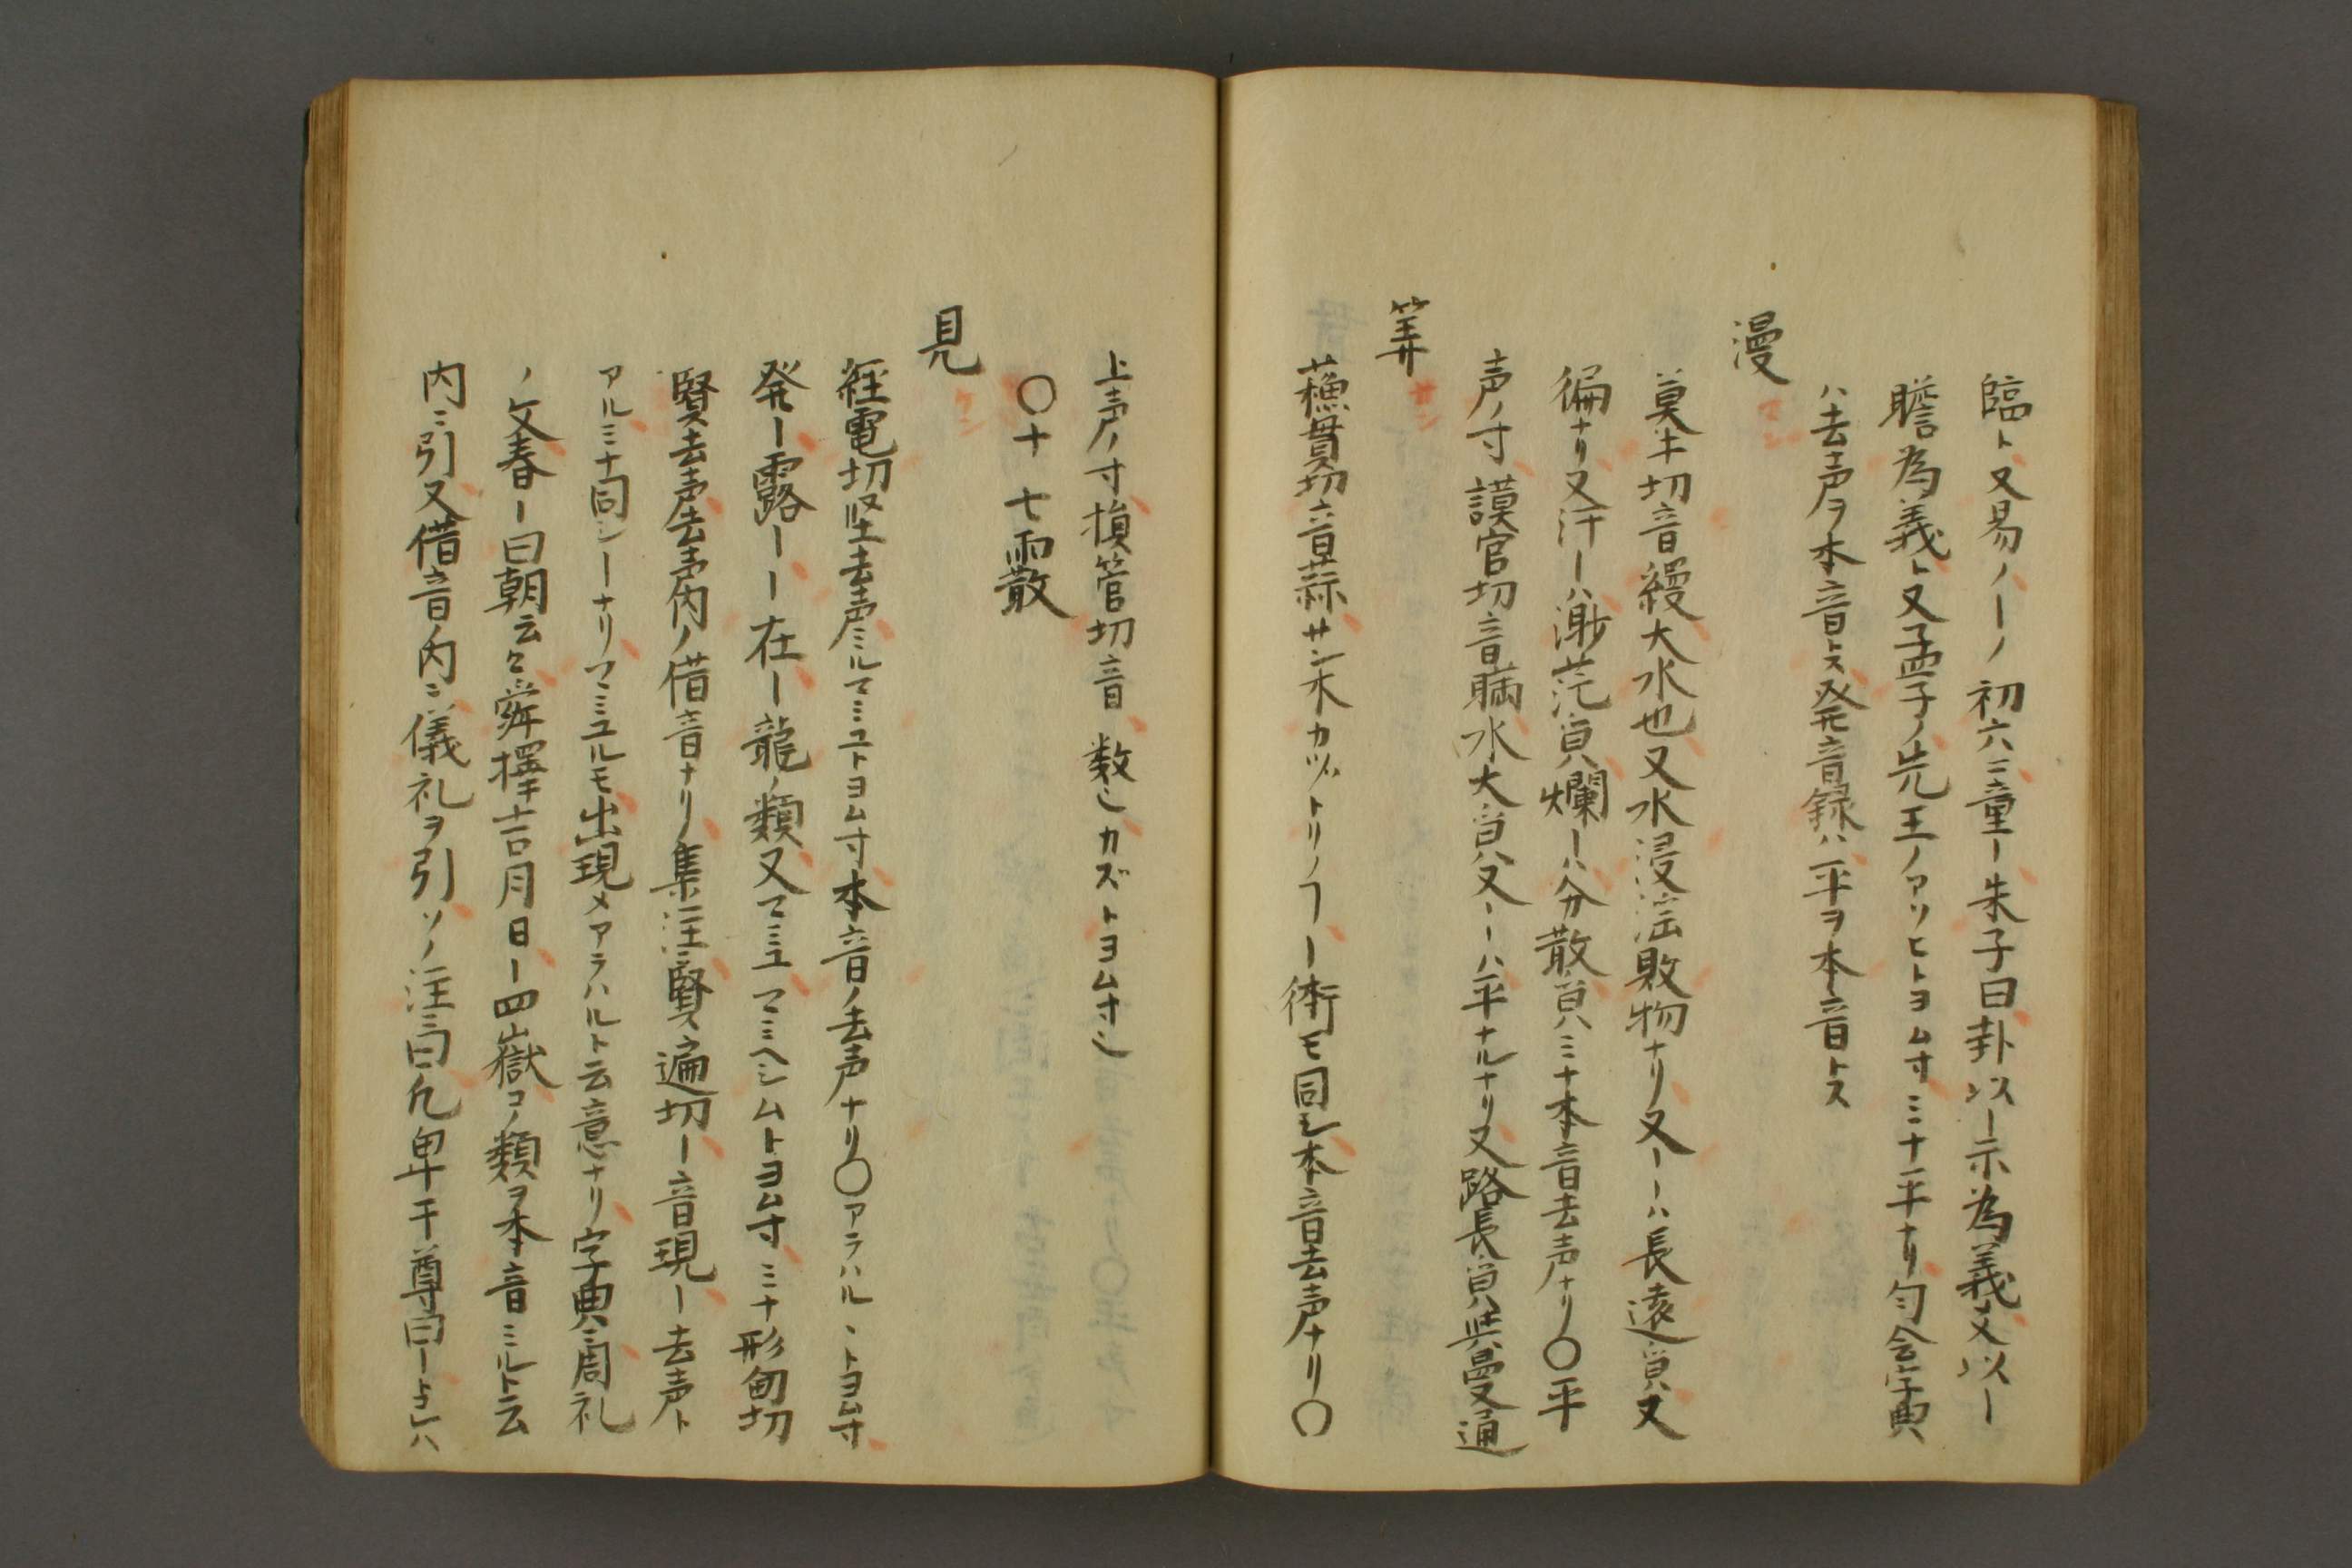 臨ト又易ノーノ初六ニ童ー朱子曰卦以ー示為義又以ー
瞻為義ト又孟子ノ先王ノアソヒトヨム寸ミナ平ナリ匀会字典
ハ去声ヲ本音トス発音録ハ平ヲ本音トス
漫 マン
莫半切音縵大水也又水浸淫敗物ナリ又ーハ長遠皃又
徧ナリ又汗ーハ渺茫皃爛ーハ分散皃ハミナ本音去声ナリ〇平
声ノ寸謨官切音瞞水大皃又ーハ平ナルナリ又路長皃与曼通
筭 サン
蘓貫切音蒜サン木カヅトリノフー術モ同シ本音去声ナリ〇
上声ノ寸損管切音 数也カズトヨム寸也
〇十七霰
見 ケン
経電切堅去声ミルマミユトヨム寸本音ノ去声ナリ〇アラハルヽトヨム寸
発ー露ーー在ー龍ノ類又マミユマミヘシムトヨム寸ミナ形甸切
賢去声去声内ノ借音ナリ集注ニ賢遍切ー音現ー去声ト
アルミナ同シーナリマミユルモ出現メアラハルト云意ナリ字典ニ周礼
ノ文春ー曰朝云々舜擇吉月日ー四嶽コノ類ヲ本音ミルト云
内ニ引又借音ノ内ニ儀礼ヲ引ソノ注ニ曰凡卑于尊曰ートコレハ